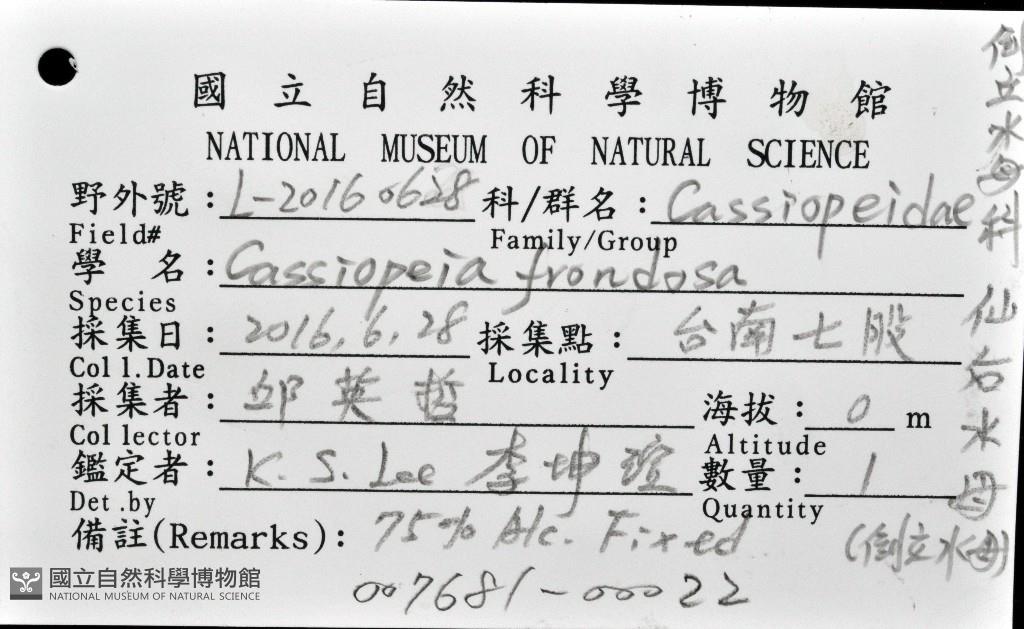 國立自然科學博物館
NATIONAL MUSEUM OF NATURAL SCIENCE
野外號：L-20160628 科/群名：Cassiopeidae
Field# Family/Group
學 名：Cassiopeia frondosa
Species
採集日：2016.6.28 採集點：台南七股
Coll.Date Locality
採集者：邱英哲 海拔：0 m
Collector Altitude
鑑定者：K.S. Lee 李坤瑄 數量：1
Det.by Quantity
備註(Remarks)：75% Alc. Fixed
007681-00022
倒立水母科 仙右水母
(倒立水母)
國立自然科學博物館
NATIONAL MUSEUM OF NATURAL SCIENCE